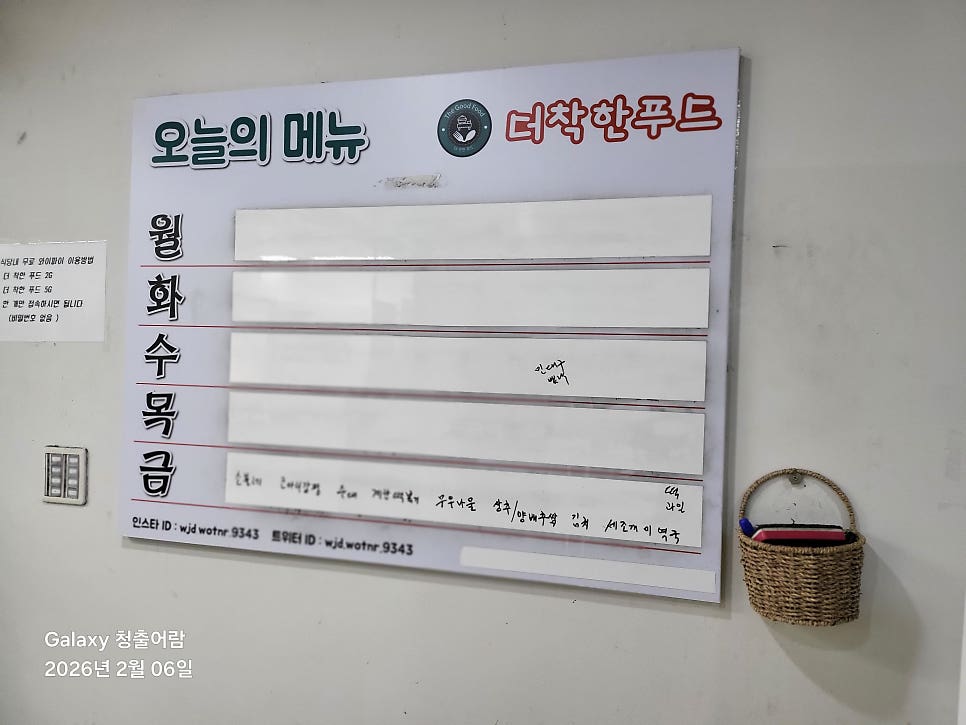 오늘의 메뉴
The Good Food
더착한푸드
월
화
수
목
금
순대 계란떡볶이 무우나물 상추/양배추쌈 김치
떡, 과일
인스타 ID : wjd wotnr.9343 트위터 ID : wjd.wotnr.9343
식당내 무료 와이파이 이용방법
더 착한 푸드 2G
더 착한 푸드 5G
한 개만 접속하시면 됩니다
(비밀번호 없음 )
Galaxy 청출어람
2026년 2월 06일